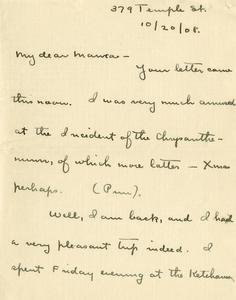 379 Temple St.
10/20/08.
My dear Mawra -
Your letter came
this noon. I was very much amused
at the Incident of the Chrysanthe-
mum, of which more latter - Xmas
perhaps. (Pun).
Well, I am back, and I had
a very pleasant trip indeed. I
spent Friday evening at the Ketcham